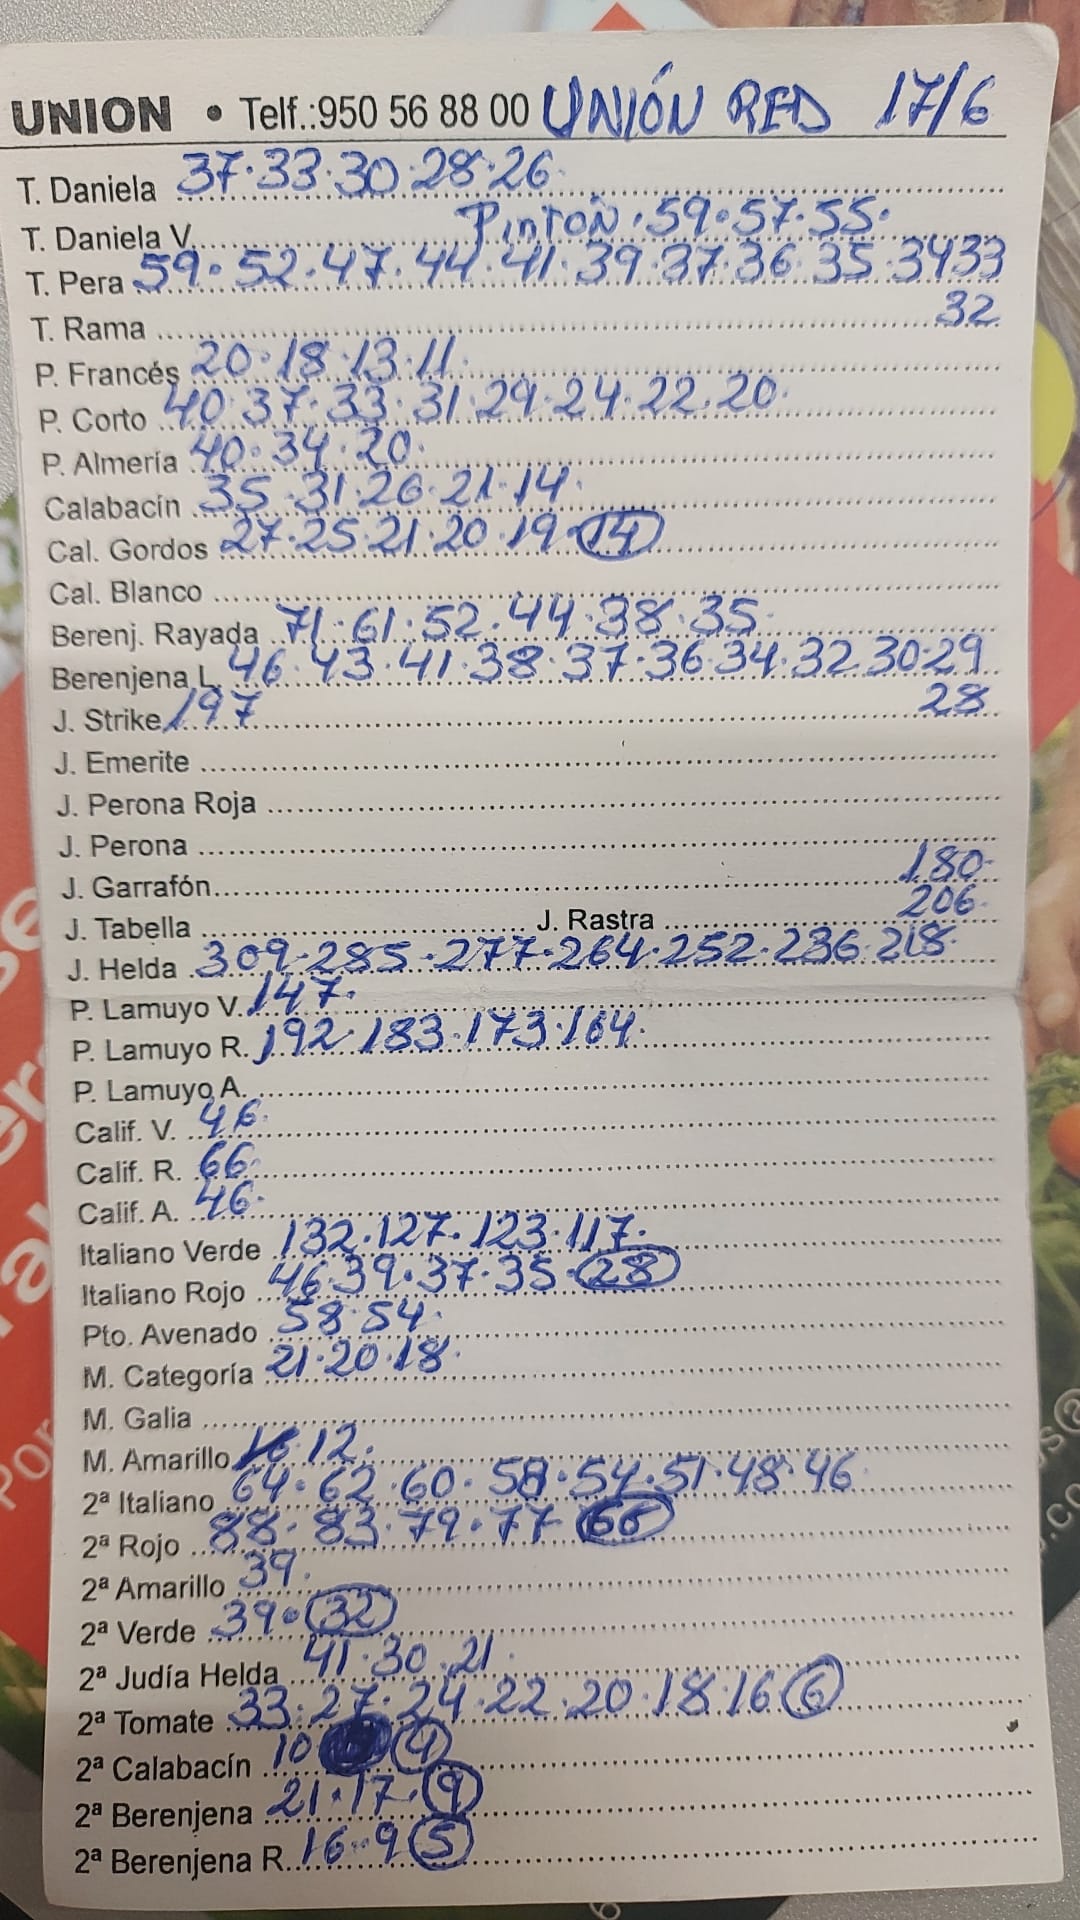 UNION • Telf.:950 56 88 00 UNIÓN RED 17/6
T. Daniela 37·33·30·28·26·
T. Daniela V. Pintón·59·57·55·
T. Pera 59·52·47·44·41·39·37·36·35·34 33
T. Rama 32
P. Francés 20·18·13·11·
P. Corto 40·37·33·31·29·24·22·20·
P. Almería 40·34·20·
Calabacín 35·31·26·21·14·
Cal. Gordos 27·25·21·20·19·14
Cal. Blanco
Berenj. Rayada 71·61·52·44·38·35·
Berenjena L. 46·43·41·38·37·36·34·32·30·29
J. Strike 197 28
J. Emerite
J. Perona Roja
J. Perona
J. Garrafón 180·
J. Tabella J. Rastra 206·
J. Helda 309·285·277·264·252·236·218·
P. Lamuyo V. 147·
P. Lamuyo R. 192·183·173·164·
P. Lamuyo A.
Calif. V. 46·
Calif. R. 66·
Calif. A. 46·
Italiano Verde 132·127·123·117·
Italiano Rojo 46·39·37·35·28
Pto. Avenado 58·54·
M. Categoría 21·20·18·
M. Galia
M. Amarillo 12·
2ª Italiano 64·62·60·58·54·51·48·46
2ª Rojo 88·83·79·77 66
2ª Amarillo 39·
2ª Verde 39·32
2ª Judía Helda 41·30·21·
2ª Tomate 33·27·24·22·20·18·16 6
2ª Calabacín 10 4
2ª Berenjena 21·17·9
2ª Berenjena R. 16·9 5